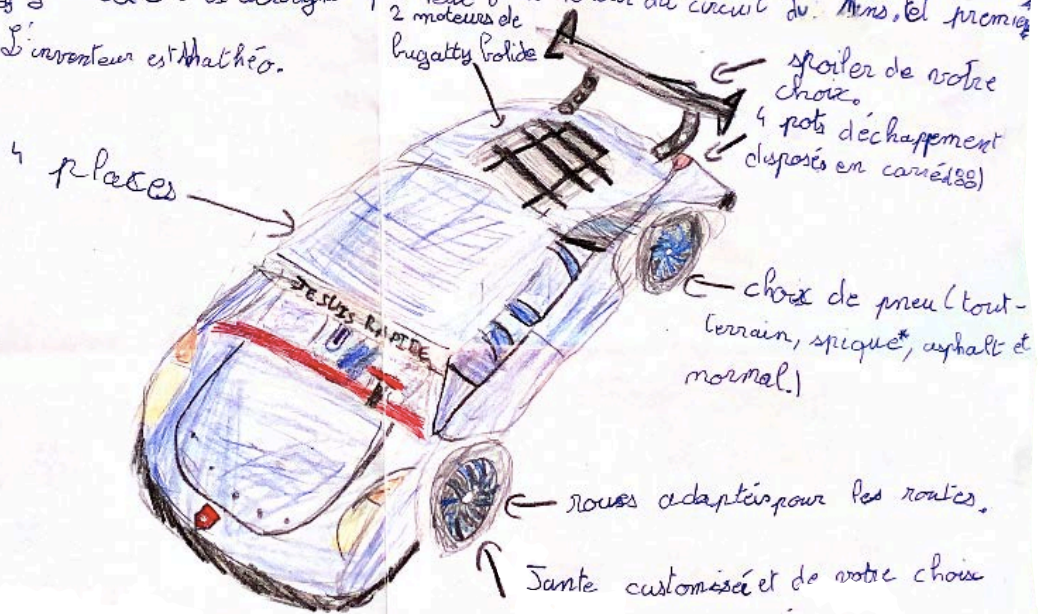 du circuit du Mans. Et premier
L'inventeur est Mathéo.
2 moteurs de
bugatty bolide
spoiler de votre
choix.
4 pots déchappement
disposés en carré(88)
4 places
JE SUIS RAPIDE
choix de pneu (tout-
terrain, spique*, asphalt et
normal.)
roues adaptés pour les routes.
Jante customisée et de votre choix